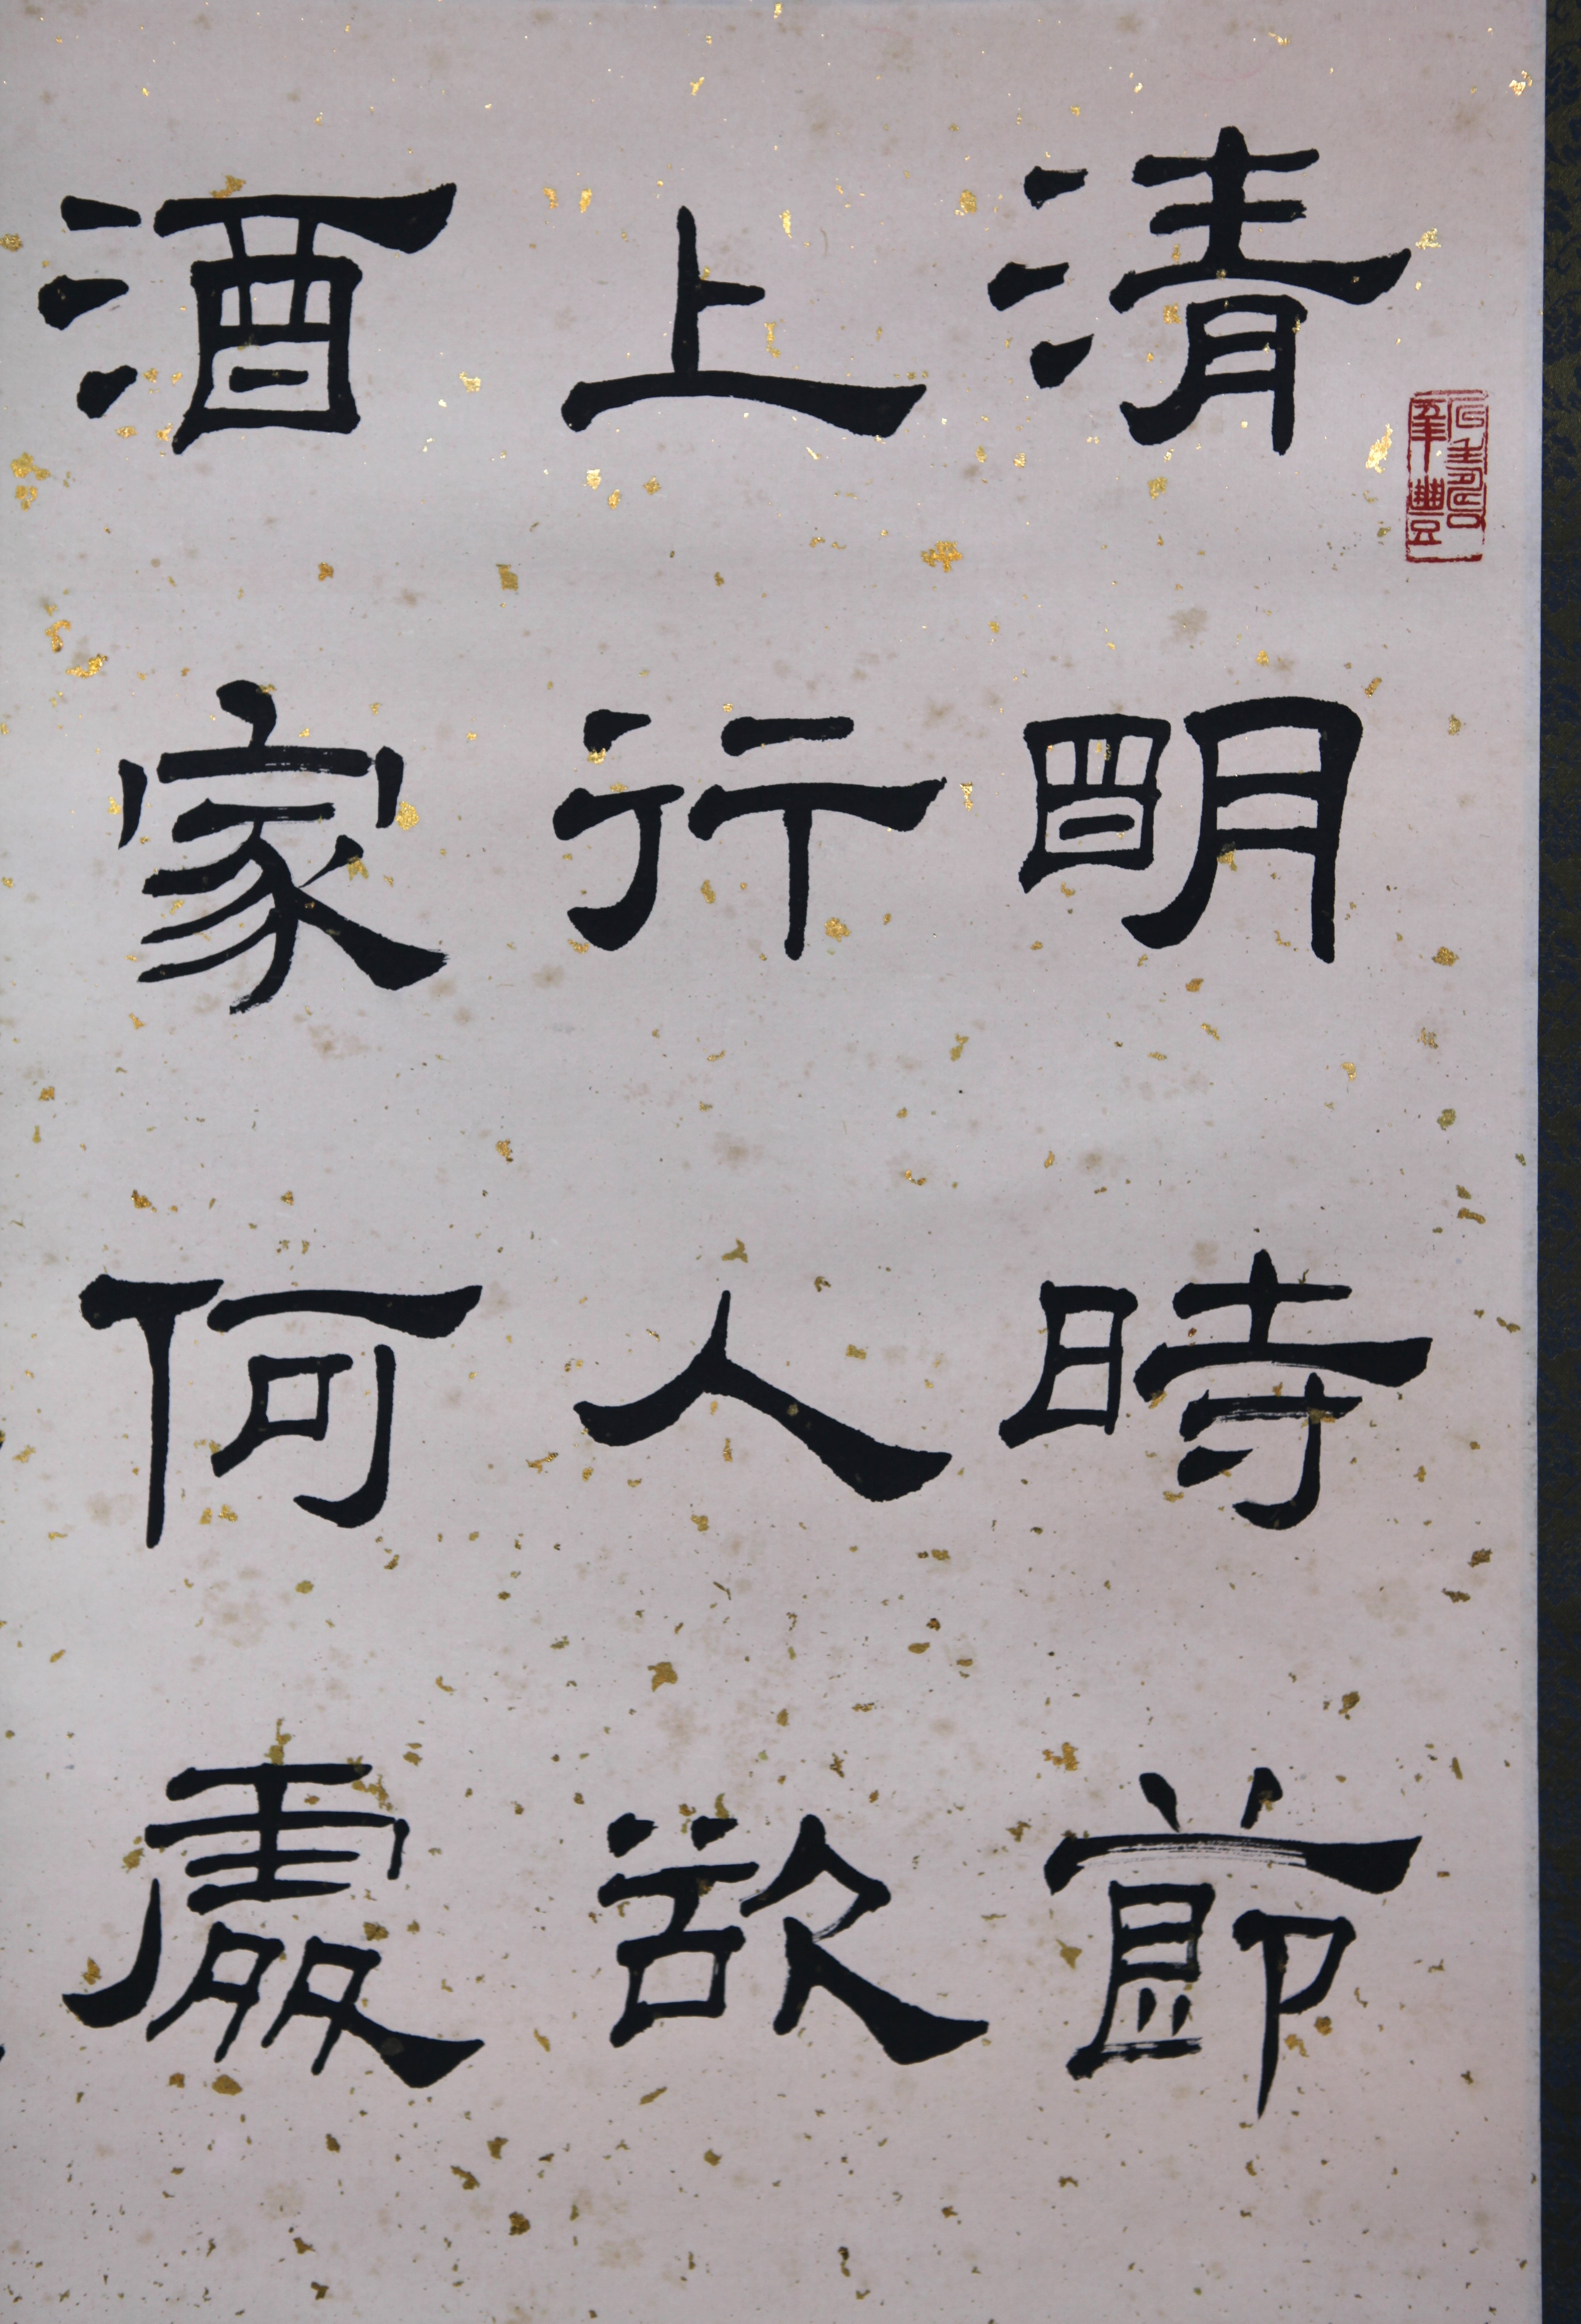 清明時節
上行人欲
酒家何處